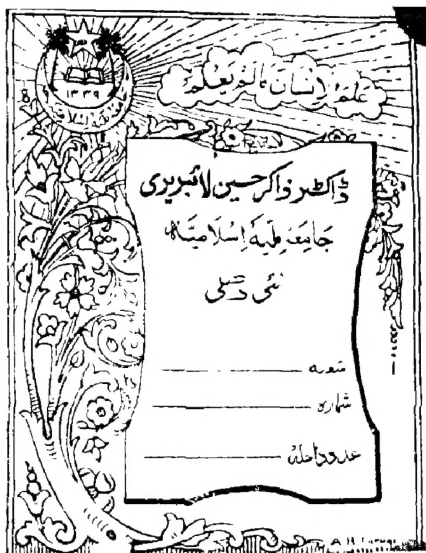 علم الانسان مالم یعلم
۱۳۳۹
ڈاکٹر ذاکر حسین لائبریری
جامعہ ملیہ اسلامیہ
نئی دہلی
شمارہ
عدد داخلہ